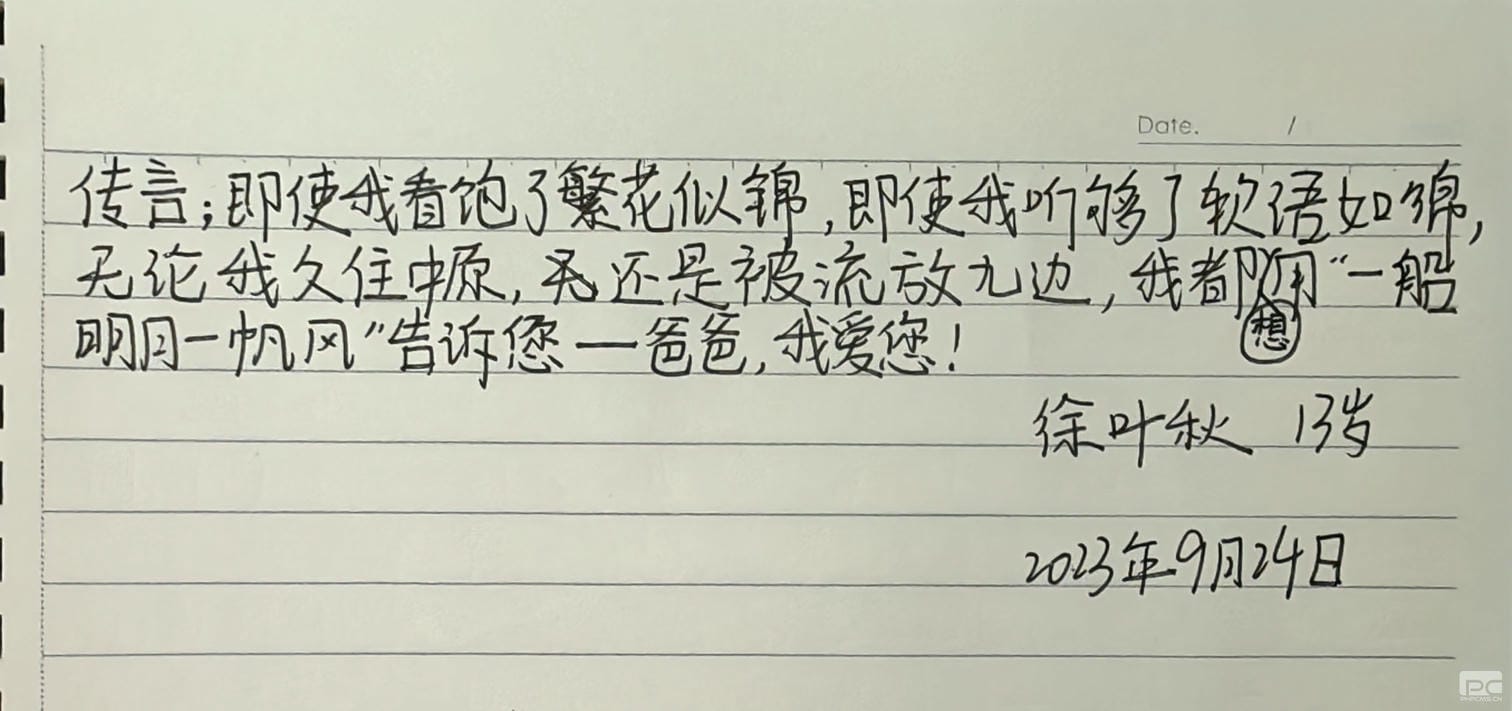 Date. /
传言;即使我看饱了繁花似锦,即使我听够了软语如绵,
无论我久住中原,还是被流放九边,我都想用“一船
明月一帆风”告诉您—爸爸,我爱您!
徐叶秋 13岁
2023年9月24日
PC
PHPCMS.CN